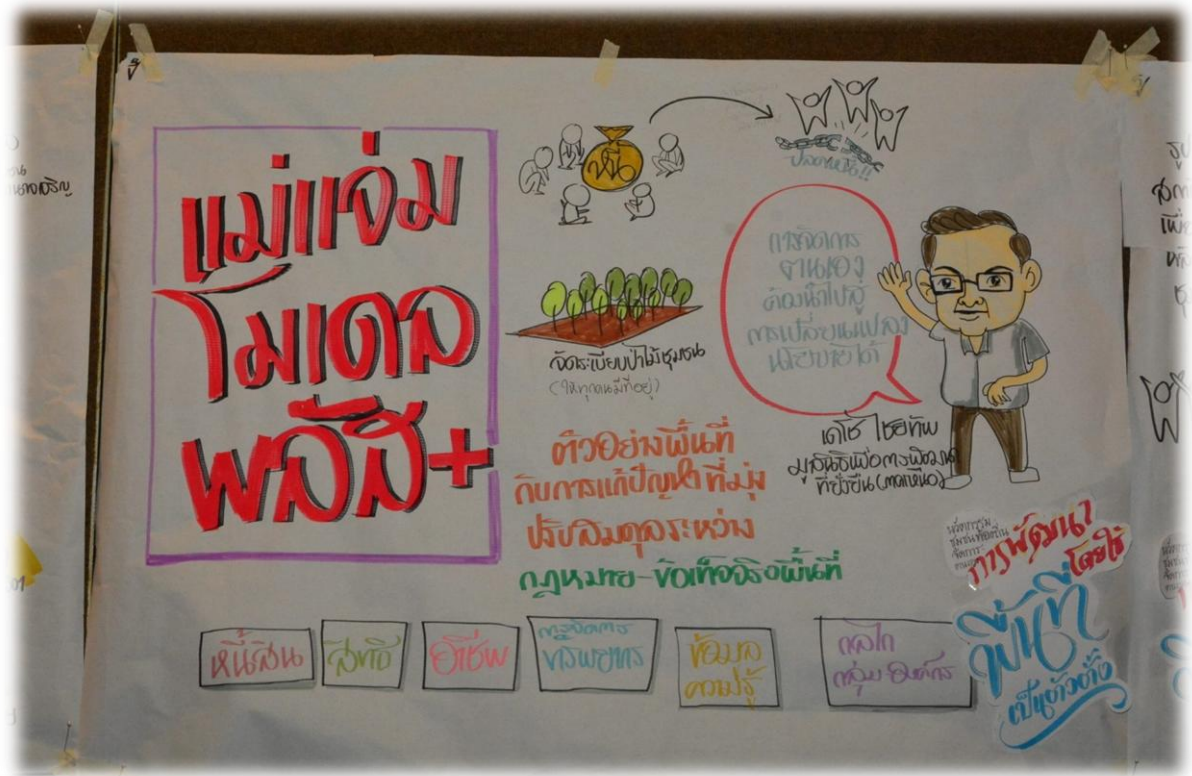 แม่แจ่ม
โมเดล
พลัส+
หนี้
ปลดหนี้!!
จัดระเบียบป่าไม้ชุมชน
(ให้ทุกคนมีที่อยู่)
การจัดการ
ตนเอง
ต้องนำไปสู่
การเปลี่ยนแปลง
นโยบายได้
เดโช ไชยทัพ
มูลนิธิเพื่อการพัฒนา
ที่ยั่งยืน (ภาคเหนือ)
ตัวอย่างพื้นที่
กับการแก้ปัญหาที่มุ่ง
ปรับสมดุลระหว่าง
กฎหมาย-ข้อเท็จจริงพื้นที่
หนี้สิน
สิทธิ
อาชีพ
การจัดการ
ทรัพยากร
ข้อมูล
ความรู้
กลไก
กลุ่ม องค์กร
นวัตกรรม
ชุมชนท้องถิ่น
จัดการ
ตนเอง
การพัฒนา
โดยใช้
พื้นที่
เป็นตัวตั้ง